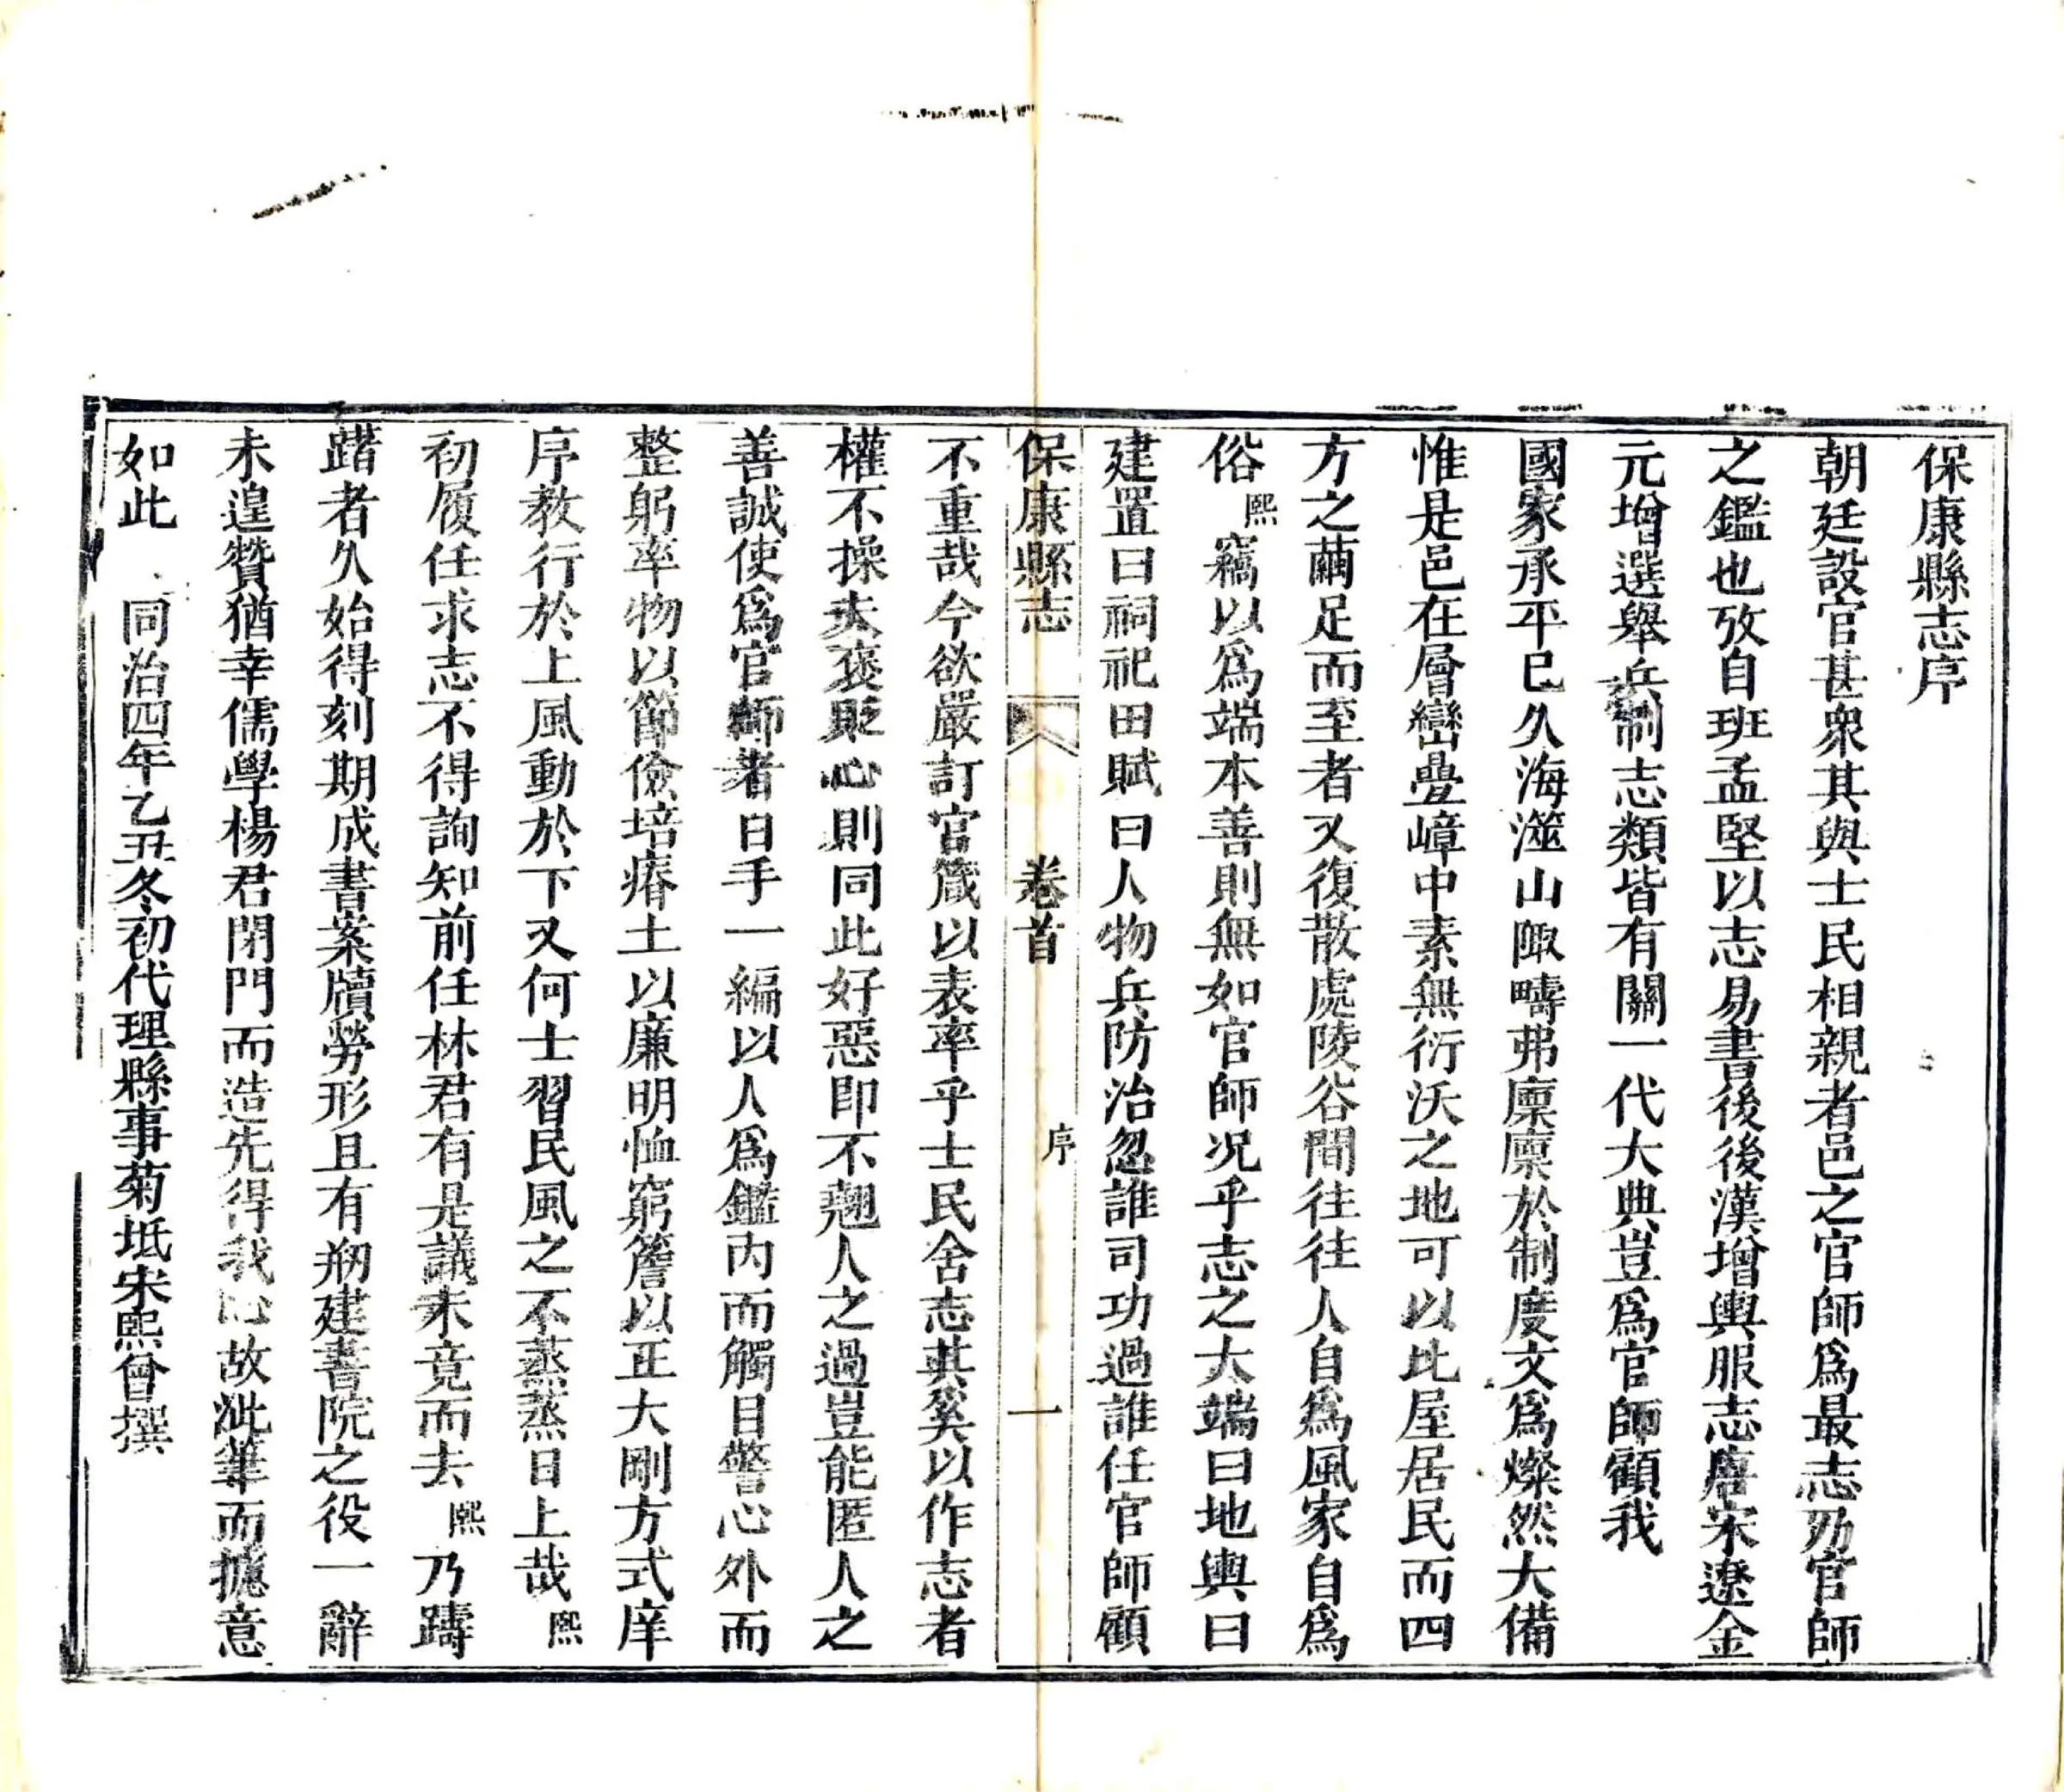 保康縣志序
朝廷設官甚衆其與士民相親者邑之官師爲最志乃官師
之鑑也攷自班孟堅以志易書後後漢增輿服志唐宋遼金
元增選舉兵制志類皆有關一代大典豈爲官師顧我
國家承平已久海澨山陬疇弗廩廩於制度文爲燦然大備
惟是邑在層巒疊嶂中素無衍沃之地可以比屋居民而四
方之繭足而至者又復散處陵谷間往往人自爲風家自爲
俗熙竊以爲端本善則無如官師况乎志之大端曰地輿曰
建置曰祠祀田賦曰人物兵防治忽誰司功過誰任官師顧
保康縣志 卷首 序 一
不重哉今欲嚴訂官箴以表率乎士民舍志其奚以作志者
權不操夫褒貶心則同此好惡即不翹人之過豈能匿人之
善誠使爲官師者日手一編以人爲鑑内而觸目警心外而
整躬率物以節儉培瘠土以廉明恤窮簷以正大剛方式庠
序教行於上風動於下又何士習民風之不蒸蒸日上哉熙
初履任求志不得詢知前任林君有是議未竟而去熙乃躊
躇者久始得刻期成書案牘勞形且有剏建書院之役一辭
未遑贊猶幸儒學楊君閉門而造先得我心故泚筆而攄意
如此 同治四年乙丑冬初代理縣事菊坻宋熙曾撰